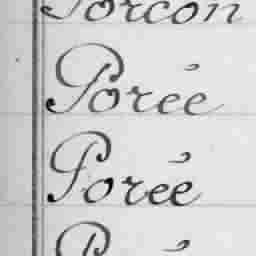 Porcon
Porée
Porée